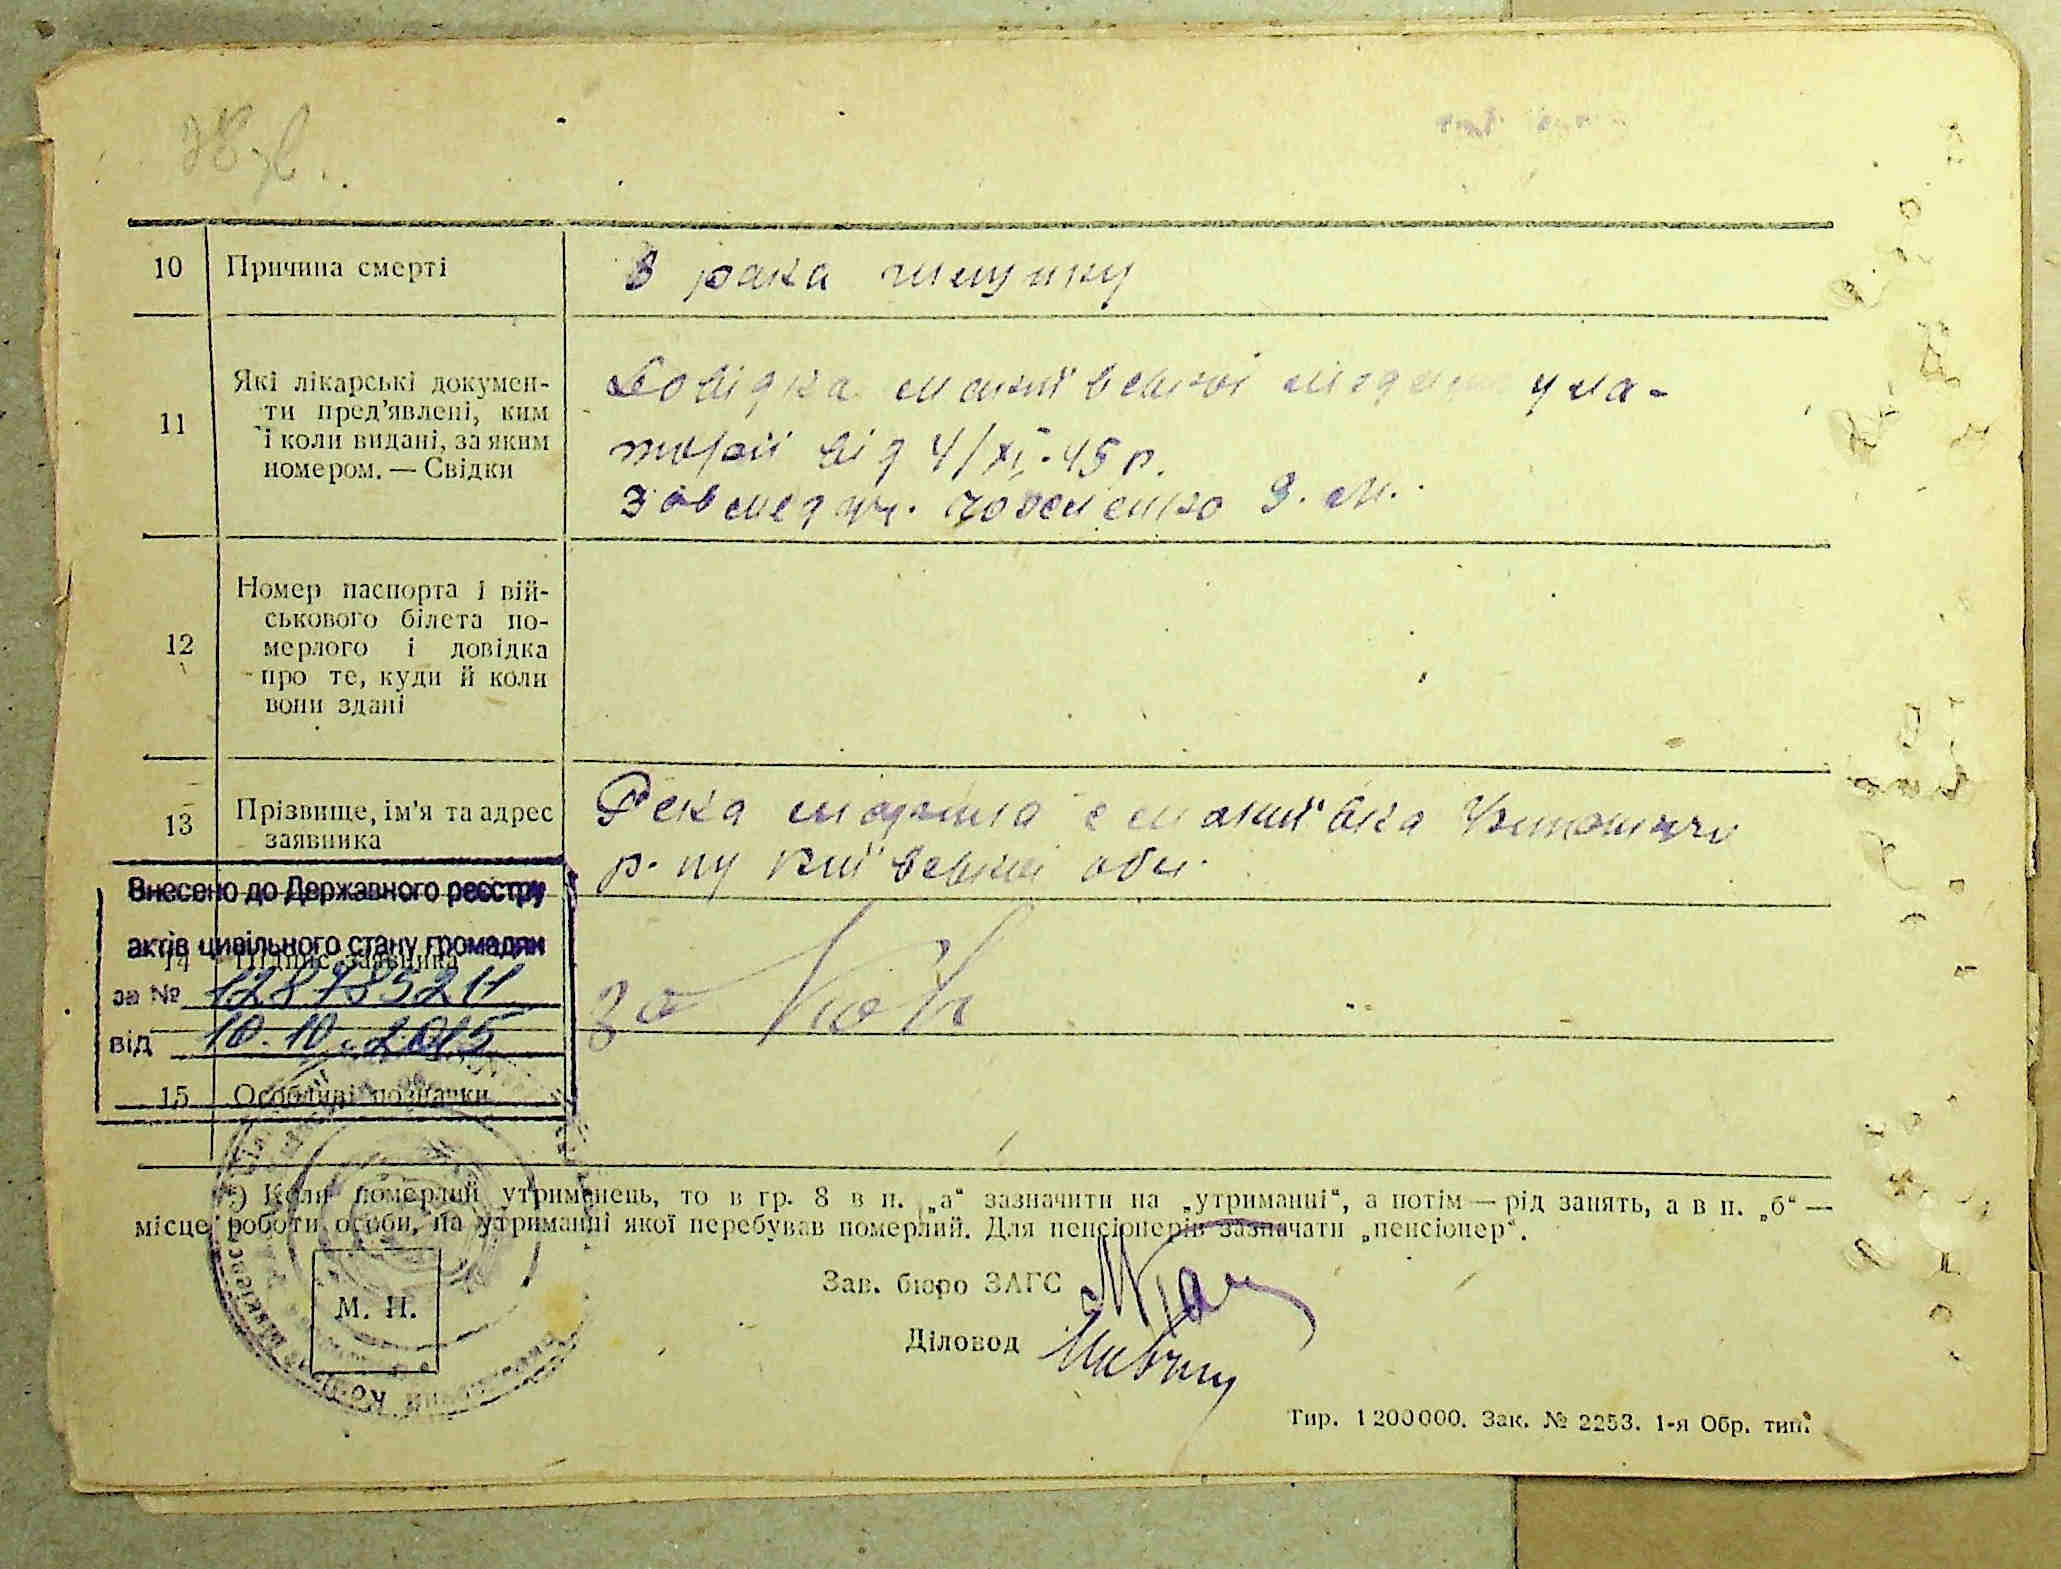 10 Причина смерті
З рака шлунку
11 Які лікарські докумен-
ти пред'явлені, ким
і коли видані, за яким
номером. — Свідки
Довідка маньківської амбула-
торії від 4/XI-45 р.
Зав медуч.
12 Номер паспорта і вій-
ськового білета по-
мерлого і довідка
про те, куди й коли
вони здані
13 Прізвище, ім'я та адрес
заявника
с Маньківка
р-ну Київської обл.
Внесено до Державного реєстру
актів цивільного стану громадян
14 Підпис заявника
за №
від 10.10.2015
15 Особливі позначки
*) Коли померлий утриманець, то в гр. 8 в п. „а“ зазначити на „утриманні“, а потім — рід занять, а в п. „б“ —
місце роботи особи, на утриманні якої перебував померлий. Для пенсіонерів зазначати „пенсіонер“.
М. П.
Зав. бюро ЗАГС
Діловод
Тир. 1 200 000. Зак. № 2253. 1-я Обр. тип.